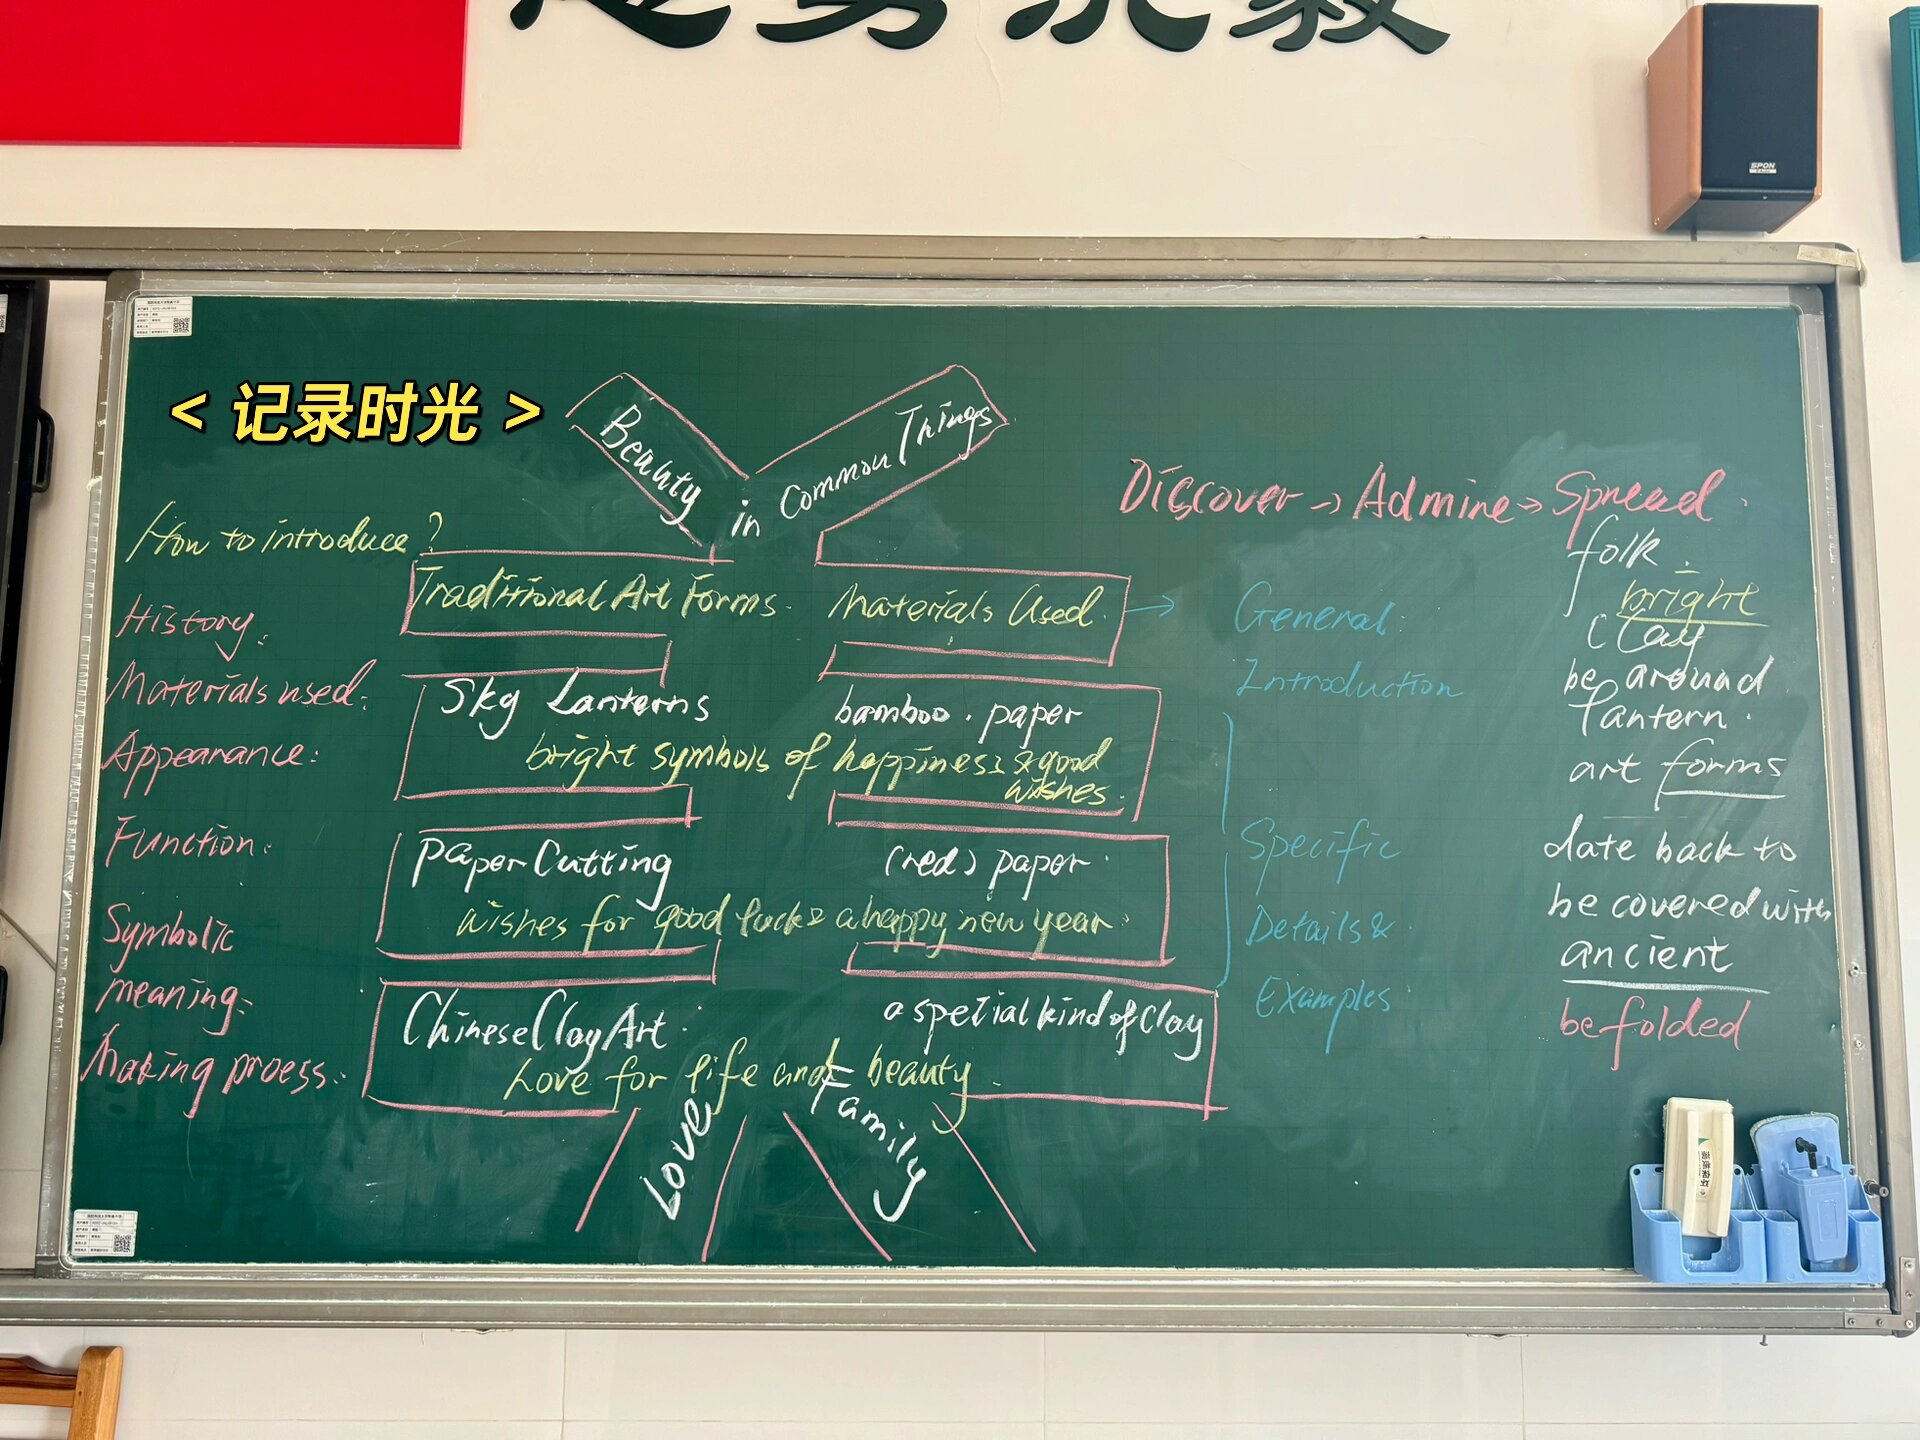 SPON
< 记录时光 >
Beauty in Common Things
Discover → Admine → Spread.
How to introduce?
History:
Materials used:
Appearance:
Function:
Symbolic
meaning:
Making proess:
Traditional Art Forms. Materials Used.
Sky Lanterns bamboo. paper
bright symbols of happiness & good
wishes.
Paper Cutting (red) paper.
wishes for good luck & a happy new year.
Chinese Clay Art. a spetial kind of Clay
Love for life and beauty.
Love Family
General
Introduction
Specific
Details &
Examples
folk.
bright
clay
be around
lantern.
art forms
date back to
be covered with
ancient
be folded